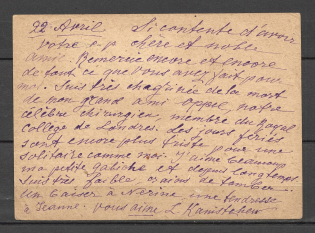 22 Avril Si contente d'avoir
votre c.p. chère et noble
amie. Remercie encore et encore
de tout ce que vous avez fait pour
moi. Suis très chagrinée de la mort
de mon grand ami Oppel, notre
célèbre chirurgien, membre du Royal
College de Londres. Les jours fériés
sont encore plus triste pour une
solitaire comme moi. J'aime beaucoup
ma petite et depuis longtemps
Suis très faible crains de tomber.
Un baiser à Nerina une tendresse
à Jeanne. Vous aime L.